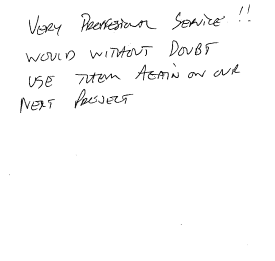 VERY PROFESSIONAL SERVICE !!
WOULD WITHOUT DOUBT
USE THEM AGAIN ON OUR
NEXT PROJECT